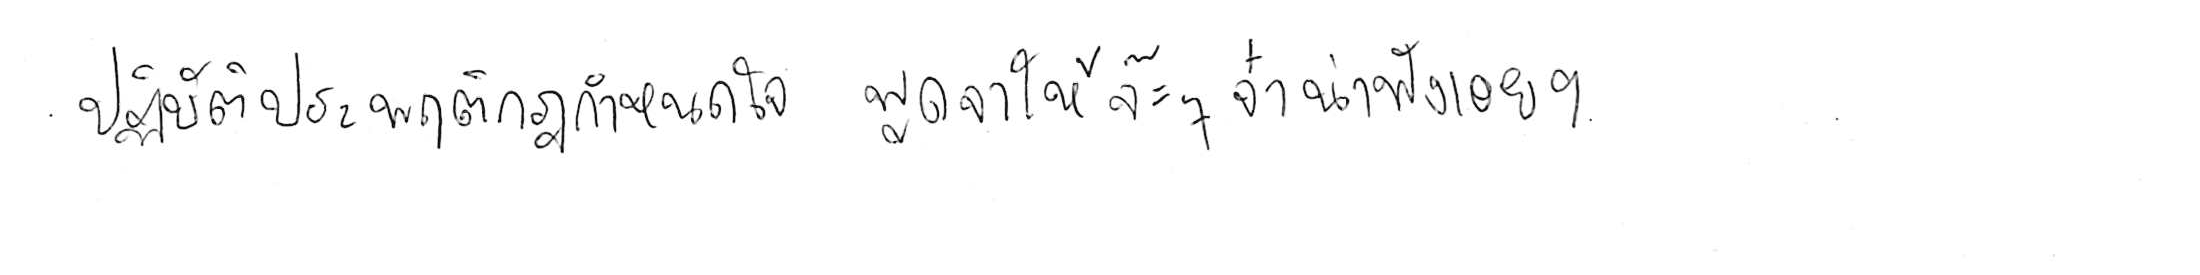 ปฏิบัติประพฤติกฎกำหนดใจ พูดจาให้จ๊ะๆ จ๋าน่าฟังเอยฯ